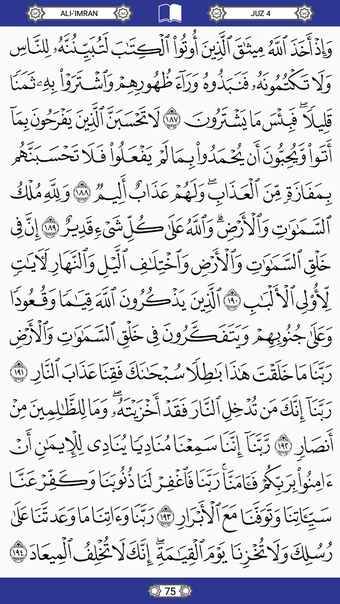 ALI-'IMRAN
JUZ 4
وَإِذْ أَخَذَ ٱللَّهُ مِيثَٰقَ ٱلَّذِينَ أُوتُوا۟ ٱلْكِتَٰبَ لَتُبَيِّنُنَّهُۥ لِلنَّاسِ
وَلَا تَكْتُمُونَهُۥ فَنَبَذُوهُ وَرَآءَ ظُهُورِهِمْ وَٱشْتَرَوْا۟ بِهِۦ ثَمَنًا
قَلِيلًا ۖ فَبِئْسَ مَا يَشْتَرُونَ ١٨٧ لَا تَحْسَبَنَّ ٱلَّذِينَ يَفْرَحُونَ بِمَآ
أَتَوا۟ وَّيُحِبُّونَ أَن يُحْمَدُوا۟ بِمَا لَمْ يَفْعَلُوا۟ فَلَا تَحْسَبَنَّهُم
بِمَفَازَةٍ مِّنَ ٱلْعَذَابِ ۖ وَلَهُمْ عَذَابٌ أَلِيمٌ ١٨٨ وَلِلَّهِ مُلْكُ
ٱلسَّمَٰوَٰتِ وَٱلْأَرْضِ ۗ وَٱللَّهُ عَلَىٰ كُلِّ شَىْءٍ قَدِيرٌ ١٨٩ إِنَّ فِى
خَلْقِ ٱلسَّمَٰوَٰتِ وَٱلْأَرْضِ وَٱخْتِلَٰفِ ٱلَّيْلِ وَٱلنَّهَارِ لَءَايَٰتٍ
لِّأُو۟لِى ٱلْأَلْبَٰبِ ١٩٠ ٱلَّذِينَ يَذْكُرُونَ ٱللَّهَ قِيَٰمًا وَقُعُودًا
وَعَلَىٰ جُنُوبِهِمْ وَيَتَفَكَّرُونَ فِى خَلْقِ ٱلسَّمَٰوَٰتِ وَٱلْأَرْضِ
رَبَّنَا مَا خَلَقْتَ هَٰذَا بَٰطِلًا سُبْحَٰنَكَ فَقِنَا عَذَابَ ٱلنَّارِ ١٩١
رَبَّنَآ إِنَّكَ مَن تُدْخِلِ ٱلنَّارَ فَقَدْ أَخْزَيْتَهُۥ ۖ وَمَا لِلظَّٰلِمِينَ مِنْ
أَنصَارٍ ١٩٢ رَّبَّنَآ إِنَّنَا سَمِعْنَا مُنَادِيًا يُنَادِى لِلْإِيمَٰنِ أَنْ
ءَامِنُوا۟ بِرَبِّكُمْ فَـَٔامَنَّا ۚ رَبَّنَا فَٱغْفِرْ لَنَا ذُنُوبَنَا وَكَفِّرْ عَنَّا
سَيِّـَٔاتِنَا وَتَوَفَّنَا مَعَ ٱلْأَبْرَارِ ١٩٣ رَبَّنَا وَءَاتِنَا مَا وَعَدتَّنَا عَلَىٰ
رُسُلِكَ وَلَا تُخْزِنَا يَوْمَ ٱلْقِيَٰمَةِ ۗ إِنَّكَ لَا تُخْلِفُ ٱلْمِيعَادَ ١٩٤
75